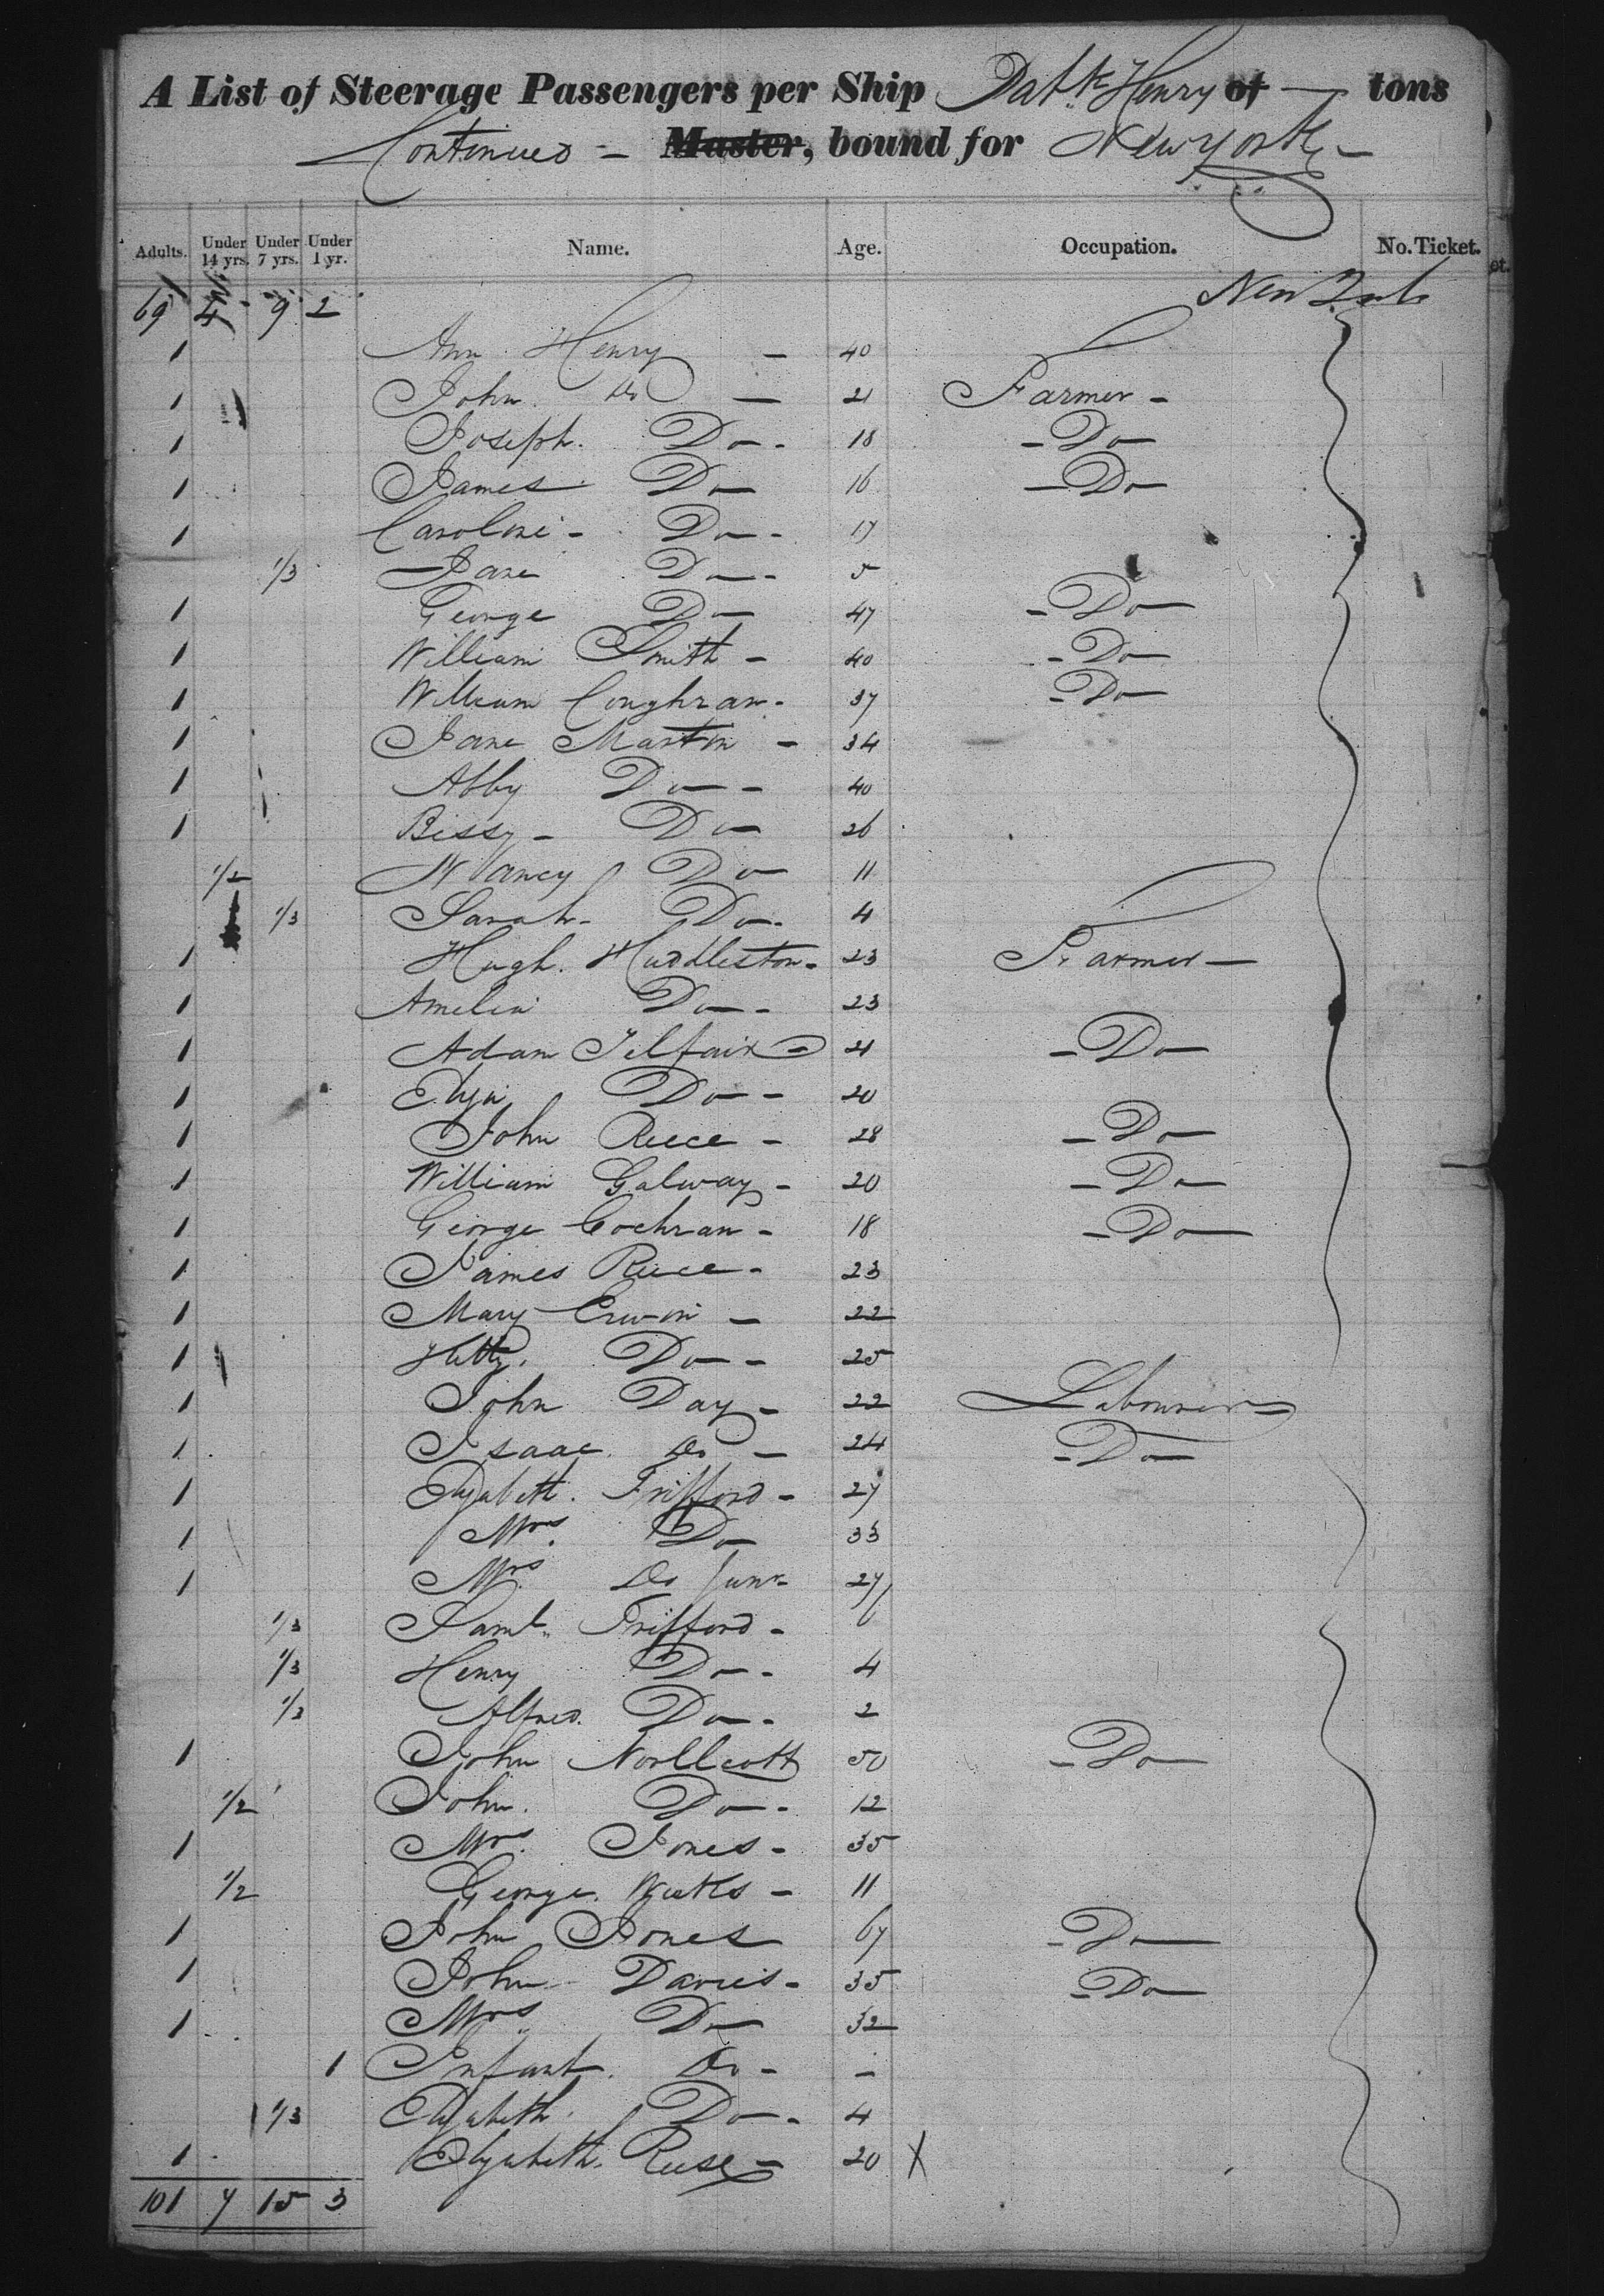 A List of Steerage Passengers per Ship Patk. Henry of — tons
Continued — Master, bound for New York —
Adults. Under 14 yrs. Under 7 yrs. Under 1 yr. Name. Age. Occupation. No. Ticket.
69 4 9 2 New York
1 Ann Henry — 40
1 John Do — 21 Farmer -
1 Joseph. Do - 18 - Do
1 James Do 16 - Do
1 Caroline - Do - 17
1/3 Jane Do - 5
1 George Do 47 - Do
1 William Smith - 40 - Do
1 William Coughran - 37 - Do
1 Jane Martin - 34
1 Abby Do - 40
1 Bissy - Do 26
1/2 Nancy Do 11
1/3 Sarah - Do - 4
1 Hugh. Huddleston - 23 Farmer -
1 Amelia Do - 23
1 Adam Telfair - 21 - Do
1 Eliza Do - 20
1 John Reece - 28 - Do
1 William Galway - 20 - Do
1 George Cochran - 18 - Do
1 James Reece - 23
1 Mary Erwin - 22
1 Hetty. Do - 25
1 John Day - 22 Labourer -
1 Isaac. Do - 24 - Do
1 Elizabeth. Trifford - 27
1 Mrs. Do 33
1 Mrs. Do Junr 27
1/3 Saml. Trifford - 6
1/3 Henry Do - 4
1/3 Alfred. Do - 2
1 John Northcott 50 - Do
1/2 John. Do - 12
1 Mrs. Jones - 35
1/2 George. - 11
1 John Jones 67 - Do
1 John Davies - 35 - Do
1 Mrs. Do 32
1 Infant. Do - -
1/3 Elizabeth. Do - 4
1 Elizabeth. Reese - 20 X
101 7 15 3